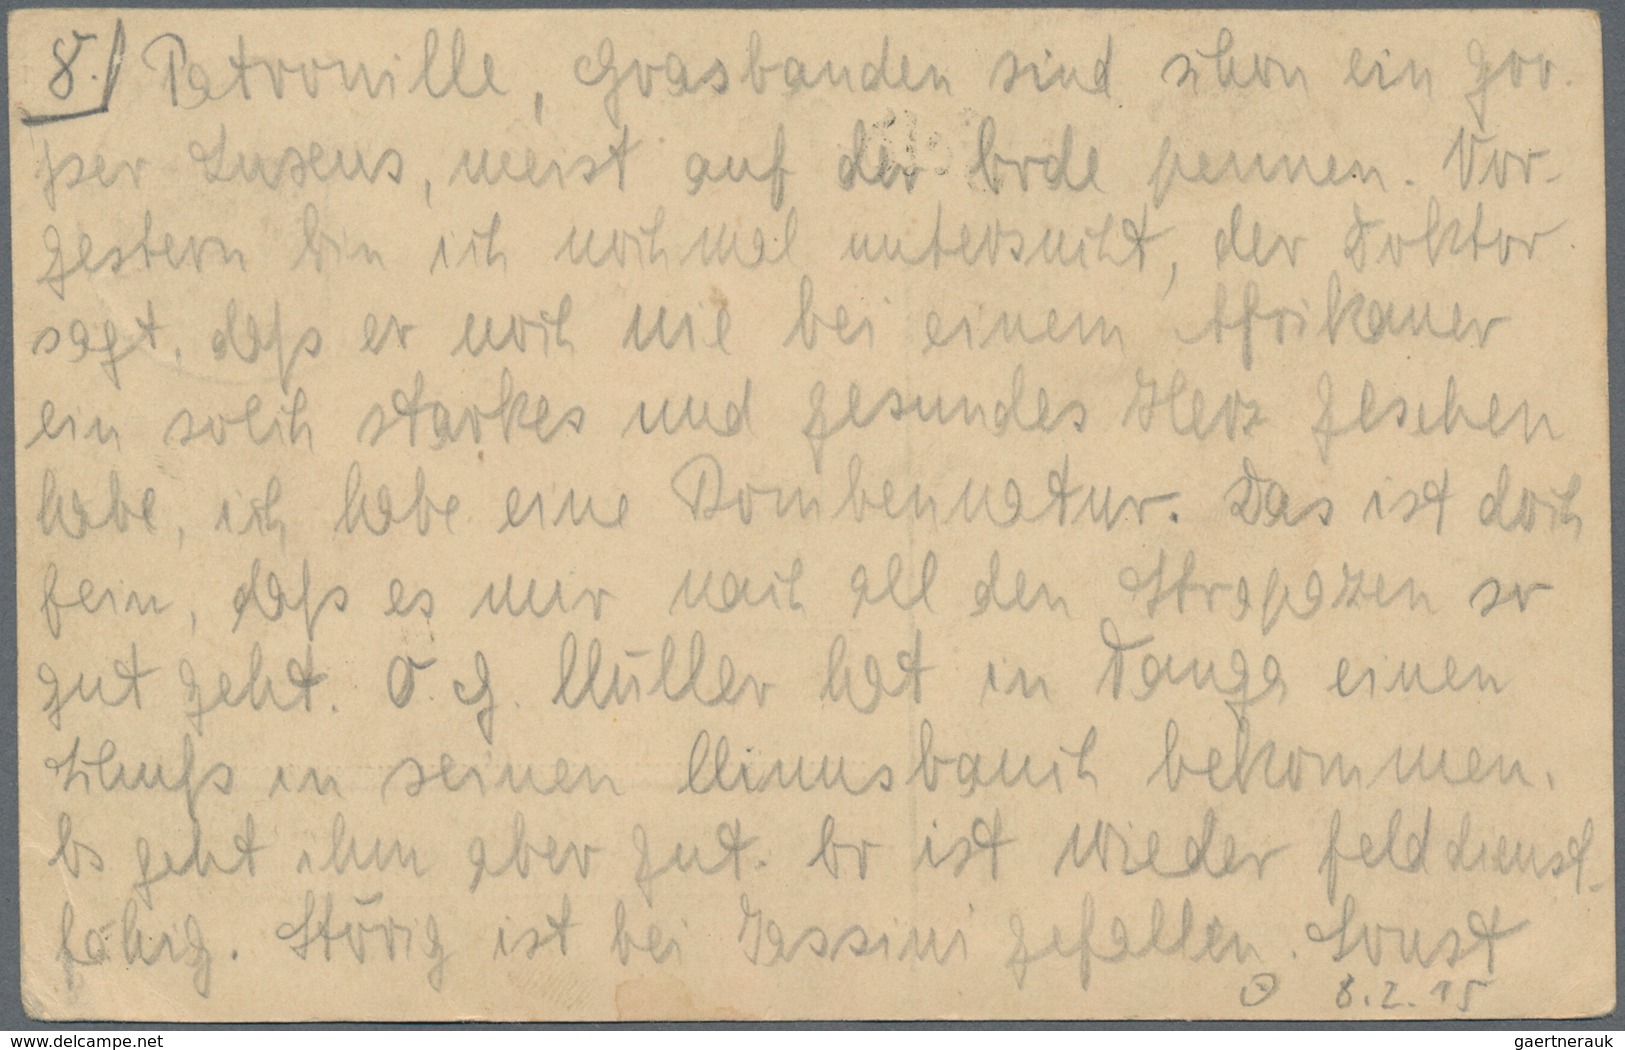 8.) Patrouille, Grasbanden sind schon ein gro-
ßer Luxus, meist auf der Erde pennen. Vor-
gestern bin ich nochmal untersucht, der Doktor
sagt, daß er noch nie bei einem Afrikaner
ein solch starkes und gesundes Herz gesehen
habe, ich habe eine Bombennatur. Das ist doch
fein, daß es mir nach all den Strapazen so
gut geht. O. G. Müller hat in Tanga einen
Schuß in seinen Minusbauch bekommen.
Es geht ihm aber gut. Er ist wieder felddienst-
fähig. Störig ist bei Jassini gefallen. Sonst
8.2.15
www.delcampe.net
gaertnerauk